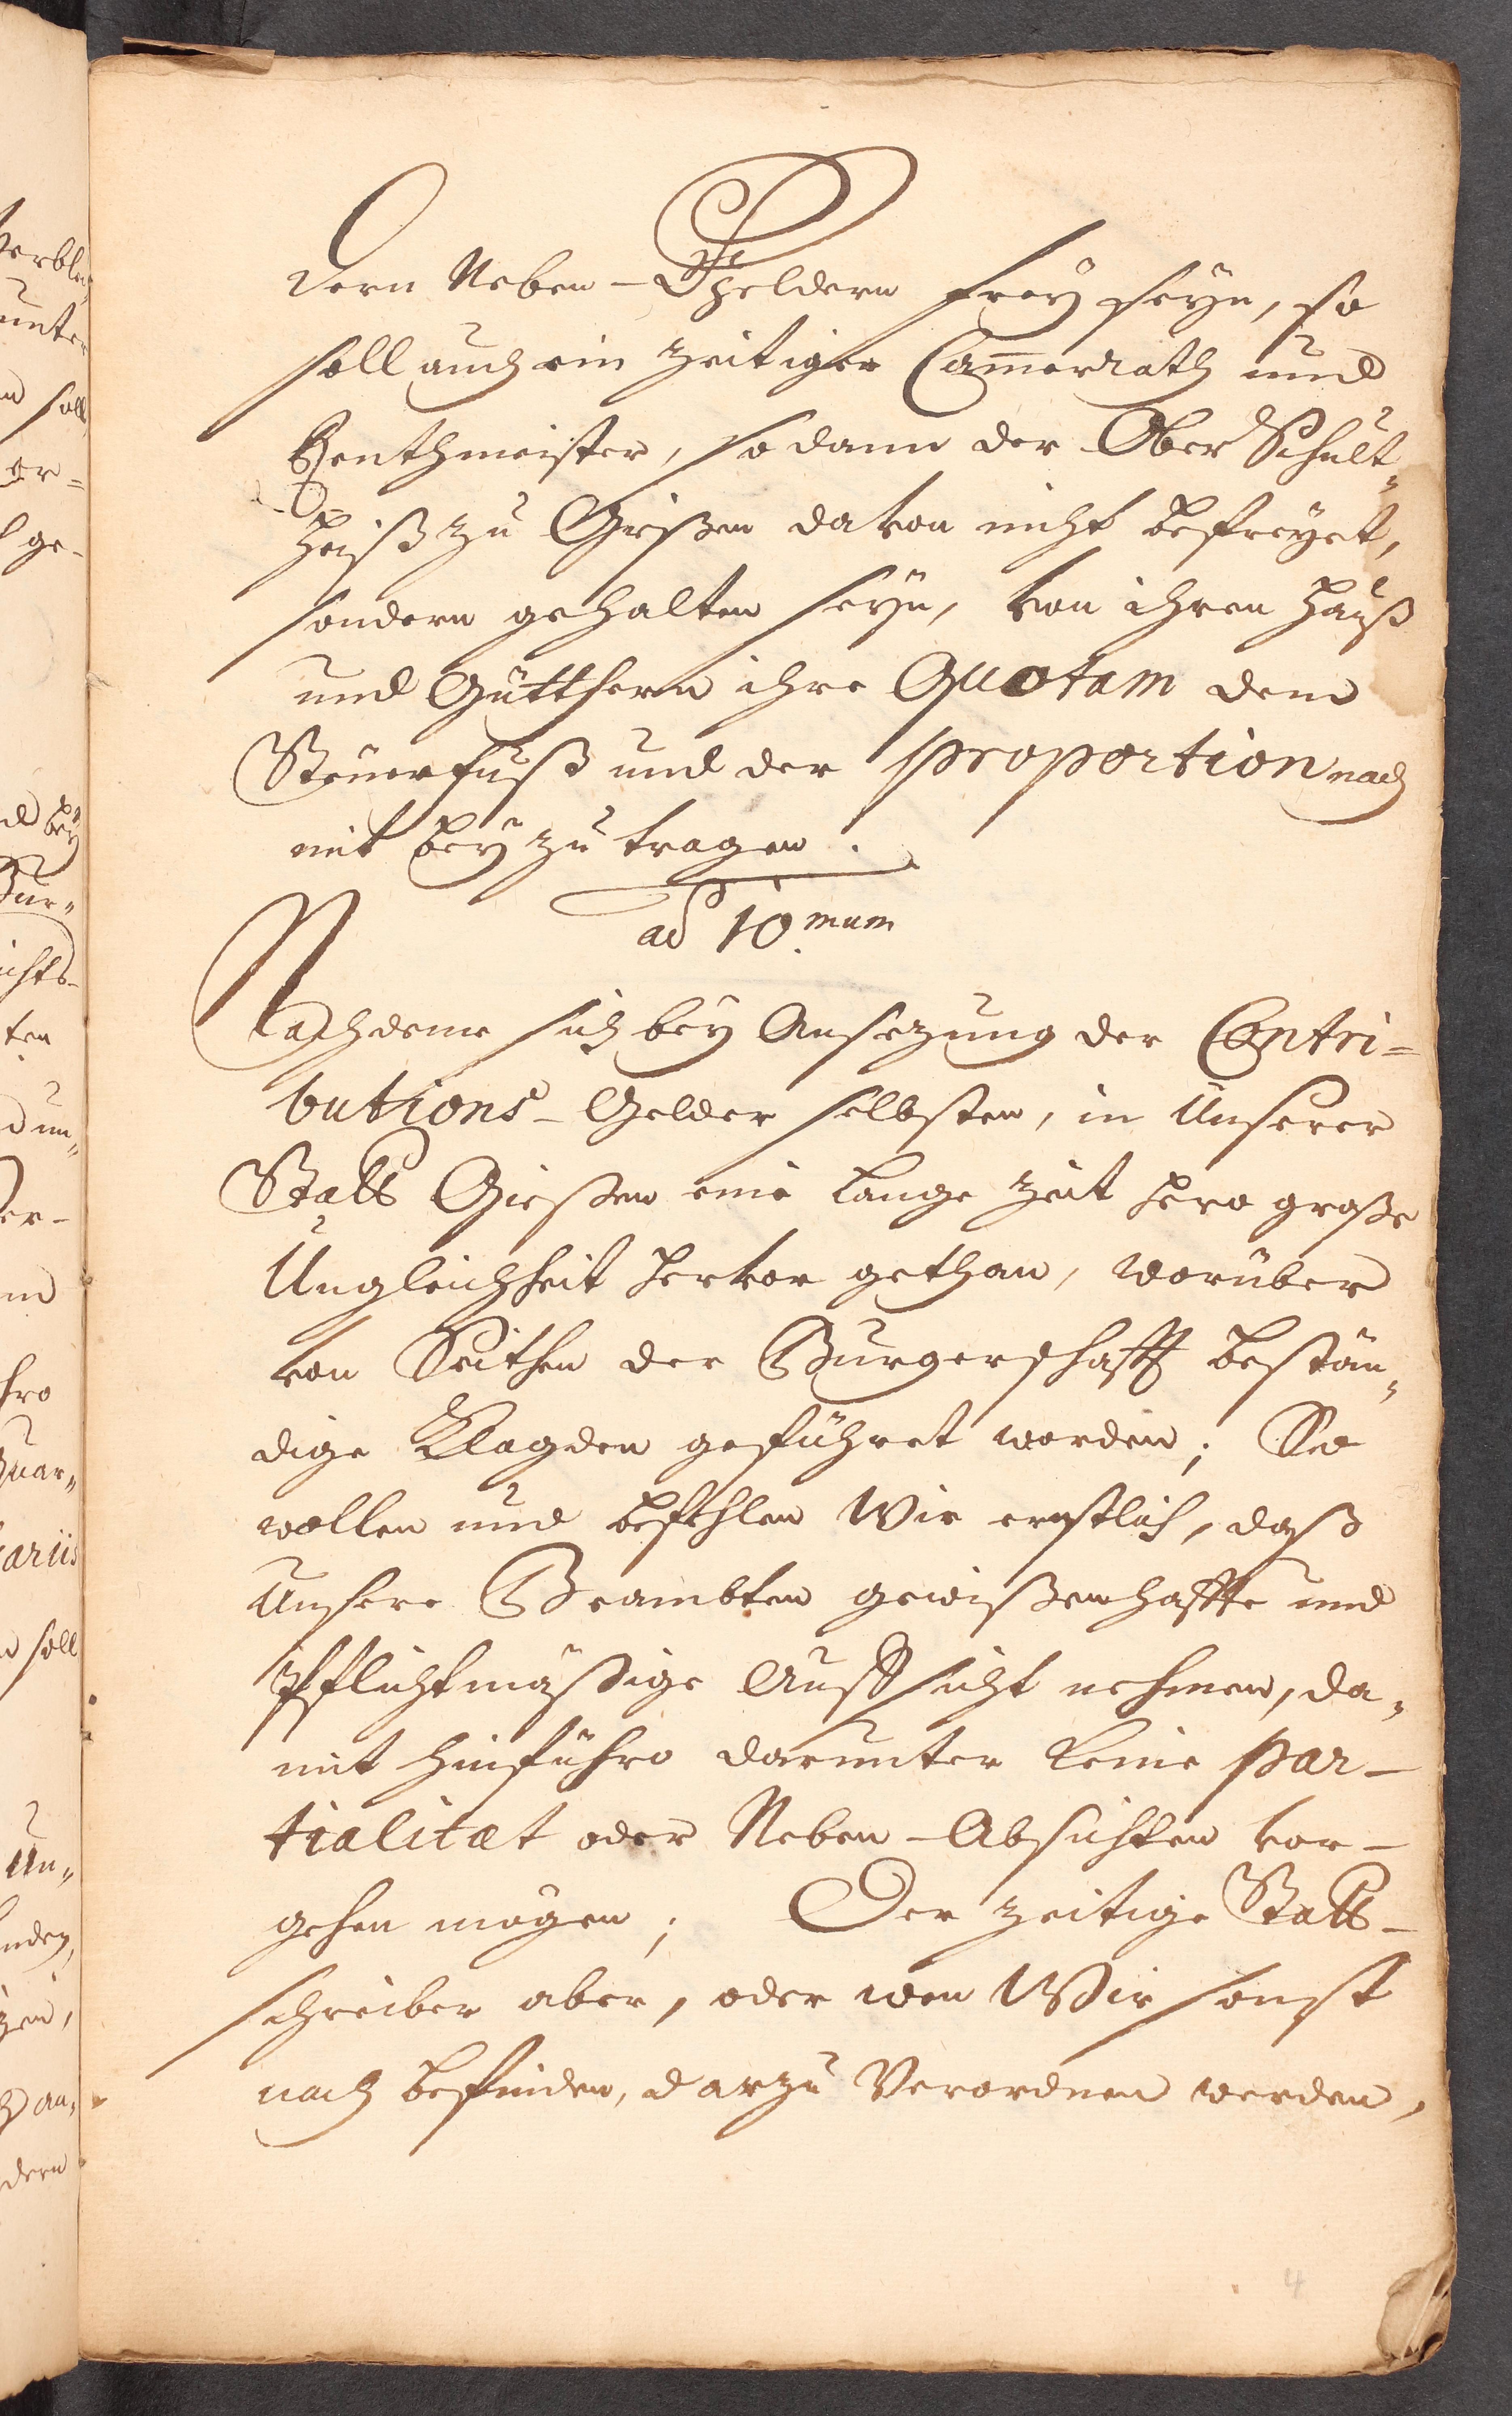 dern Neben-Gheldern frey seyn, so
soll auch ein zeitiger Cam̄errath und
Renthmeister, so dann der Ober Schult„
heiß zu Gießen davon nicht befreyet,
sondern gehalten seyn, von ihren Hauß
und Gütthern ihre Quotam dem
Steuerfuß und der proportion nach
mit bey zu tragen.
ad 10.mum
Nachdeme sich bey Ansezung der Contri=
butions-Gelder selbsten, in Unserer
Statt Gießen eine lange Zeit hero große
Ungleichheit hervor gethan, worüber
von Seithen der Burgerschafft bestän„
dige Klagden geführet worden; So
wollen und befehlen Wir ernstlich, daß
Unsere Beambten gewißenhaffte und
Pflichtmäßige Auffsicht nehmen, da„
mit hinführo darunter keine par-
tialitæt oder Neben-Absichten vor-
gehen mögen; Der zeitige Statt-
schreiber aber, oder wen Wir sonst
nach befinden, darzu Verordnen werden,
4